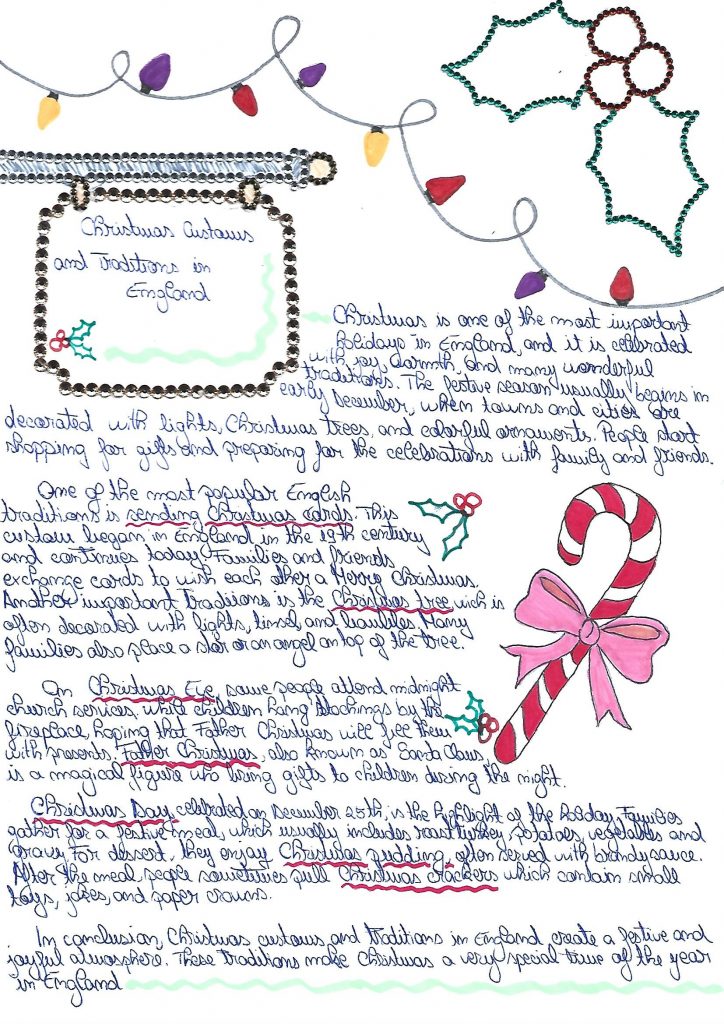 Christmas Customs
and Traditions in
England
Christmas is one of the most important
holidays in England, and it is celebrated
with joy, warmth, and many wonderful
traditions. The festive season usually begins in
early December, when towns and cities are
decorated with lights, Christmas trees, and colorful ornaments. People start
shopping for gifts and preparing for the celebrations with family and friends.
One of the most popular English
traditions is sending Christmas cards. This
custom began in England in the 19th century
and continues today. Families and friends
exchange cards to wish each other a Merry Christmas.
Another important traditions is the Christmas tree wich is
often decorated with lights, tinsel, and baubles. Many
families also place a star or an angel on top of the tree.
On Christmas Eve, some people attend midnight
church services, while children hang stockings by the
fireplace, hoping that Father Christmas will fill them
with presents. Father Christmas, also known as Santa Claus,
is a magical figure who bring gifts to children during the night.
Christmas Day, celebrated on December 25th, is the highlight of the holiday. Families
gather for a festive meal, which usually includes roast turkey, potatoes, vegetables and
gravy. For dessert, they enjoy Christmas pudding, often served with brandy sauce.
After the meal, people sometimes pull Christmas crackers which contain small
toys, jokes, and paper crowns.
In conclusion, Christmas customs and traditions in England create a festive and
joyful atmosphere. These traditions make Christmas a very special time of the year
in England